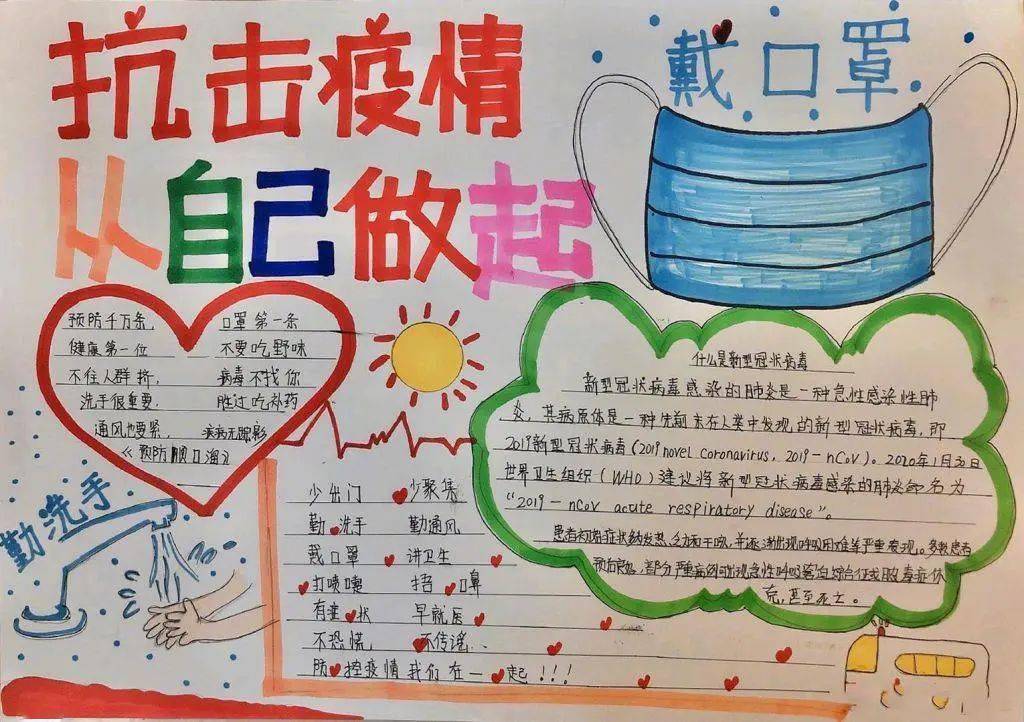 抗击疫情
从自己做起
戴口罩
预防千万条， 口罩第一条
健康第一位 不要吃野味
不住人群挤， 病毒不找你
洗手很重要， 胜过吃补药
通风也要紧， 疾病无踪影
《预防顺口溜》
什么是新型冠状病毒
新型冠状病毒感染的肺炎是一种急性感染性肺
炎，其病原体是一种先前未在人类中发现的新型冠状病毒，即
2019新型冠状病毒（2019 novel coronavirus，2019-nCoV）。2020年1月30日
世界卫生组织（WHO）建议将新型冠状病毒感染的肺炎命名为
“2019-nCoV acute respiratory disease”。
患者初始症状为发热、乏力和干咳，并逐渐出现呼吸困难等严重表现。多数患者
预后良好，部分严重病例可出现急性呼吸窘迫综合征或脓毒症休
克，甚至死亡。
勤洗手
少出门 少聚集
勤洗手 勤通风
戴口罩 讲卫生
打喷嚏 捂口鼻
有症状 早就医
不恐慌， 不传谣、
防控疫情我们在一起！！！